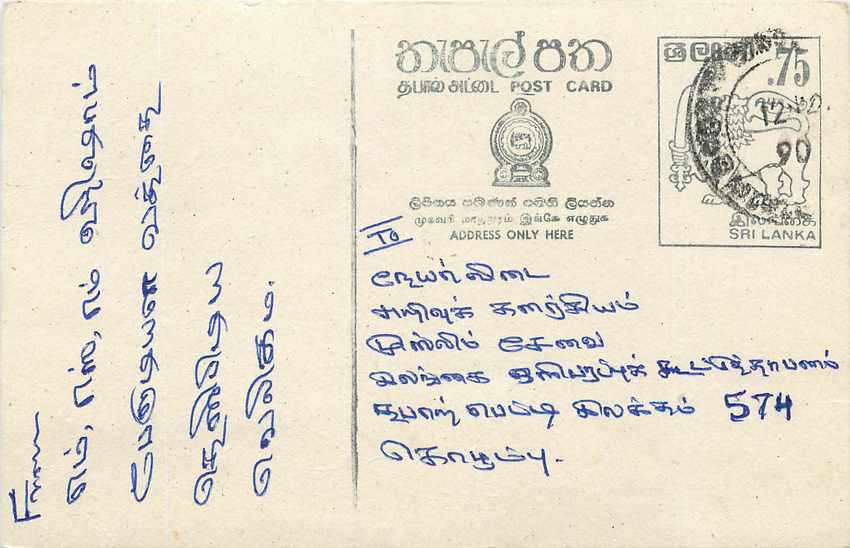 තැපැල් පත
தபால் அட்டை POST CARD
ලිපිනය පමණක් මෙහි ලියන්න
முகவரி மாத்திரம் இங்கே எழுதுக
ADDRESS ONLY HERE
ශ්‍රී ලංකා
.75
12
90
இலங்கை
SRI LANKA
To
நேயர் விடை
அறிவுக் களஞ்சியம்
முஸ்லிம் சேவை
இலங்கை ஒலிபரப்புக் கூட்டுத்தாபனம்
தபாற் பெட்டி இலக்கம் 574
கொழும்பு.
From
எம், எஸ், எம்
தெனிபிடிய
வெலிகம.